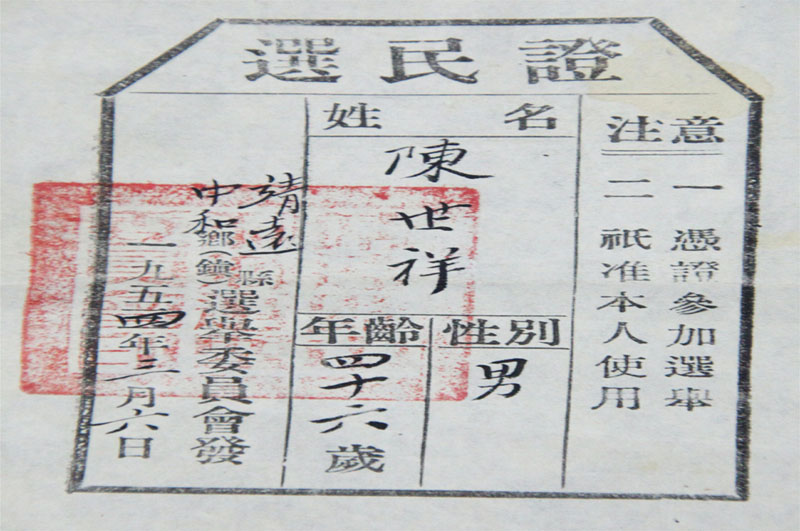 選民證
注意
一 憑證參加選舉
二 祇准本人使用
姓名
陳世祥
性別
男
年齡
四十六歲
靖遠縣
中和鄉(鎮)選舉委員會發
一九五四年三月六日